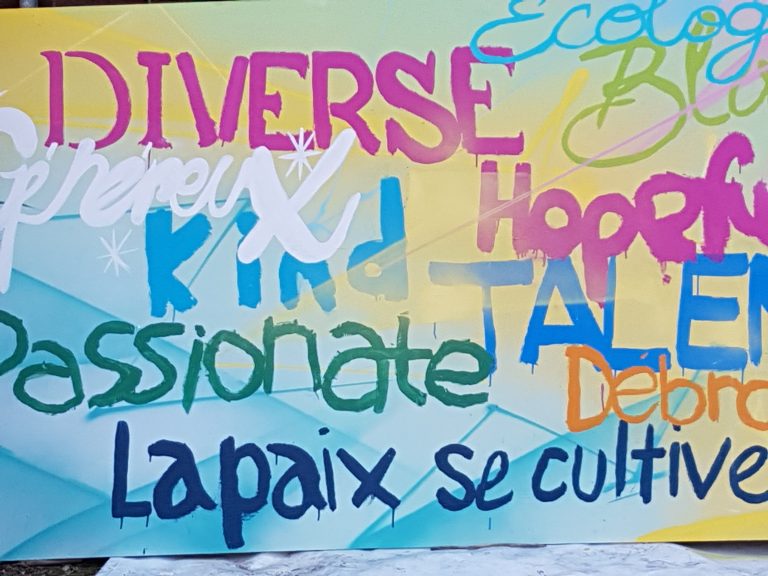 Ecolog
DIVERSE
Généreux
Kind
Hopefu
TALEN
Passionate
Débro
La paix se cultive